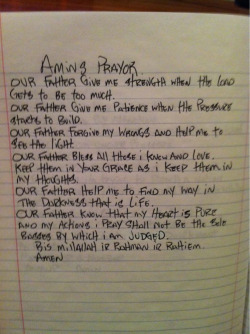 AMINS PRAYOR
OUR FATHER GIVE ME STRENGTH WHEN THE LOAD
GETS TO BE TOO MUCH.
OUR FATHER GIVE ME PATIENCE WHEN THE PRESSURE
STARTS TO BUILD.
OUR FATHER FORGIVE MY WRONGS AND HELP ME TO
SEE THE LIGHT
OUR FATHER BLESS ALL THOSE I KNOW AND LOVE.
KEEP THEM IN YOUR GRACE AS I KEEP THEM IN
MY THOUGHTS.
OUR FATHER HELP ME TO FIND MY WAY IN
THE DARKNESS THAT IS LIFE.
OUR FATHER KNOW THAT MY HEART IS PURE
AND MY ACTIONS I PRAY SHALL NOT BE THE SOLE
BASSES BY WHICH I AM JUDGED.
BIS MILLALLAH IR RAHMAN IR RAHIEM.
AMEN